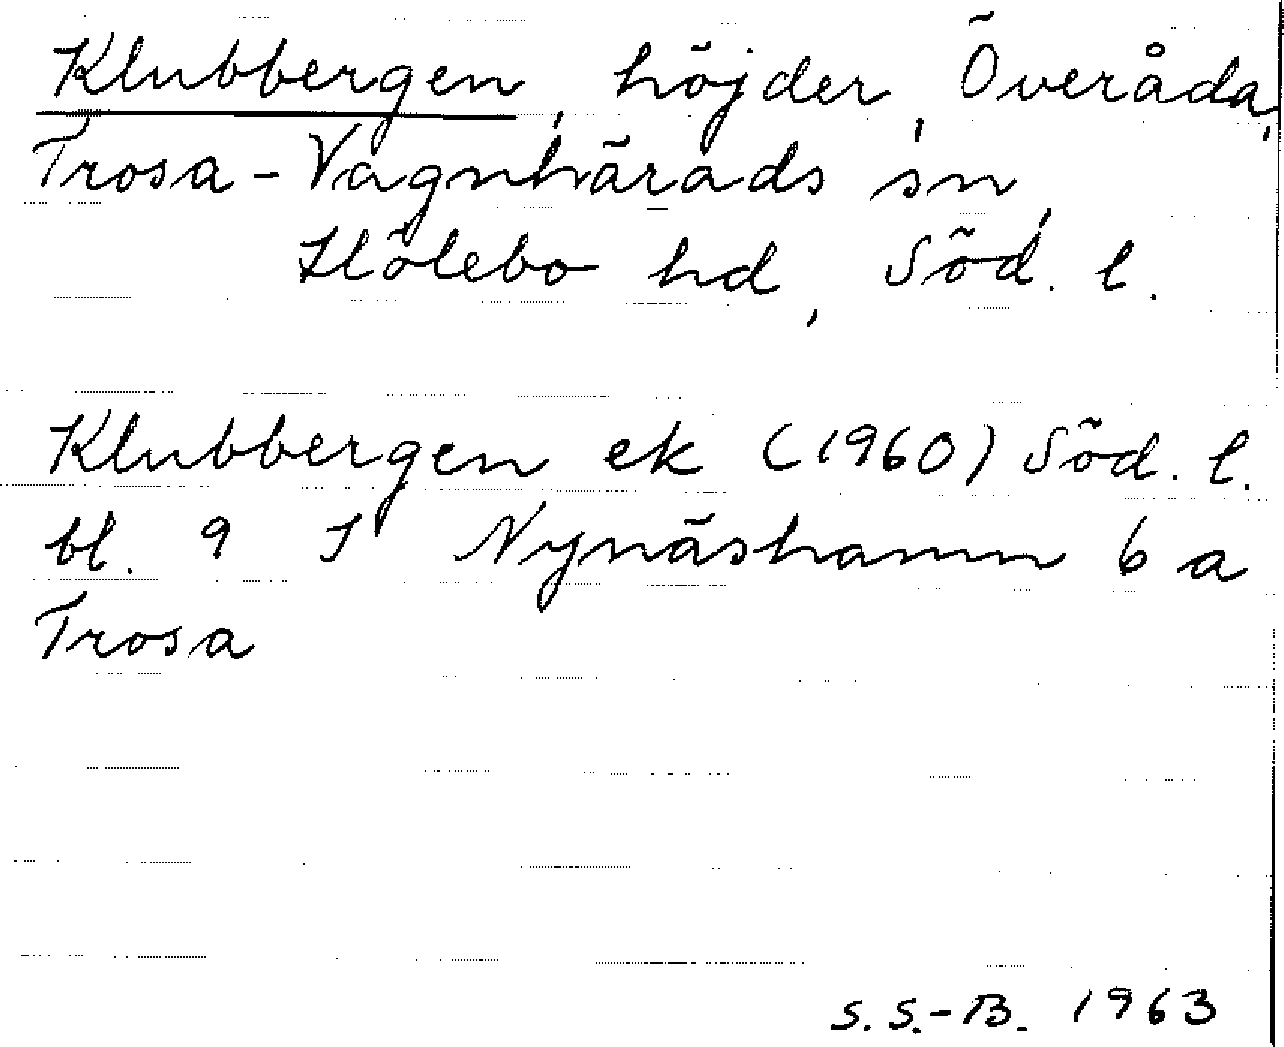 Klubbergen, höjder, Överåda,
Trosa-Vagnhärads sn,
Hölebo hd, Söd. l.
Klubbergen ek (1960) Söd. l.
bl. 9 I Nynäshamn 6 a
Trosa
S. S.-B. 1963